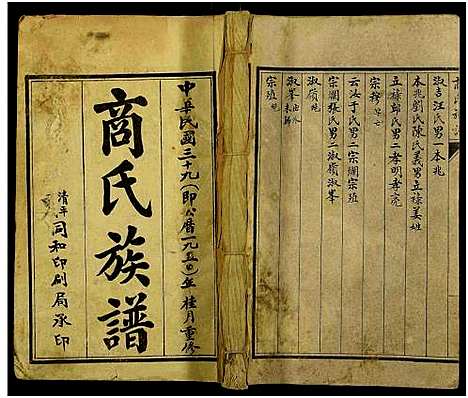 淑吉汪氏男一本兆
本兆劉氏陳氏義男立祿姜姓
立祿鄒氏男二孝明孝虎
宗穆
云汝于氏男二宗瀾宗殖
宗瀾張氏男二淑嶺淑峯
淑嶺
淑峯出外未歸
宗殖
中華民國三十九(即公曆一九五〇)年桂月重修
商氏族譜
清平同和印刷局承印